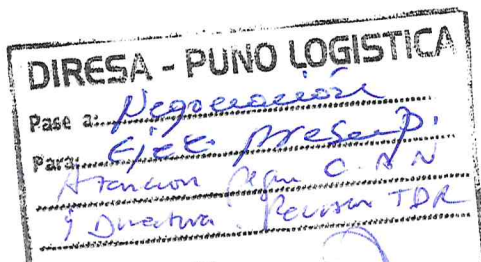 DIRESA - PUNO LOGISTICA
Pase a: Negociación
Para: Ejec. Presup.
Atencion según C. A N
y Directiva. Revisar TDR